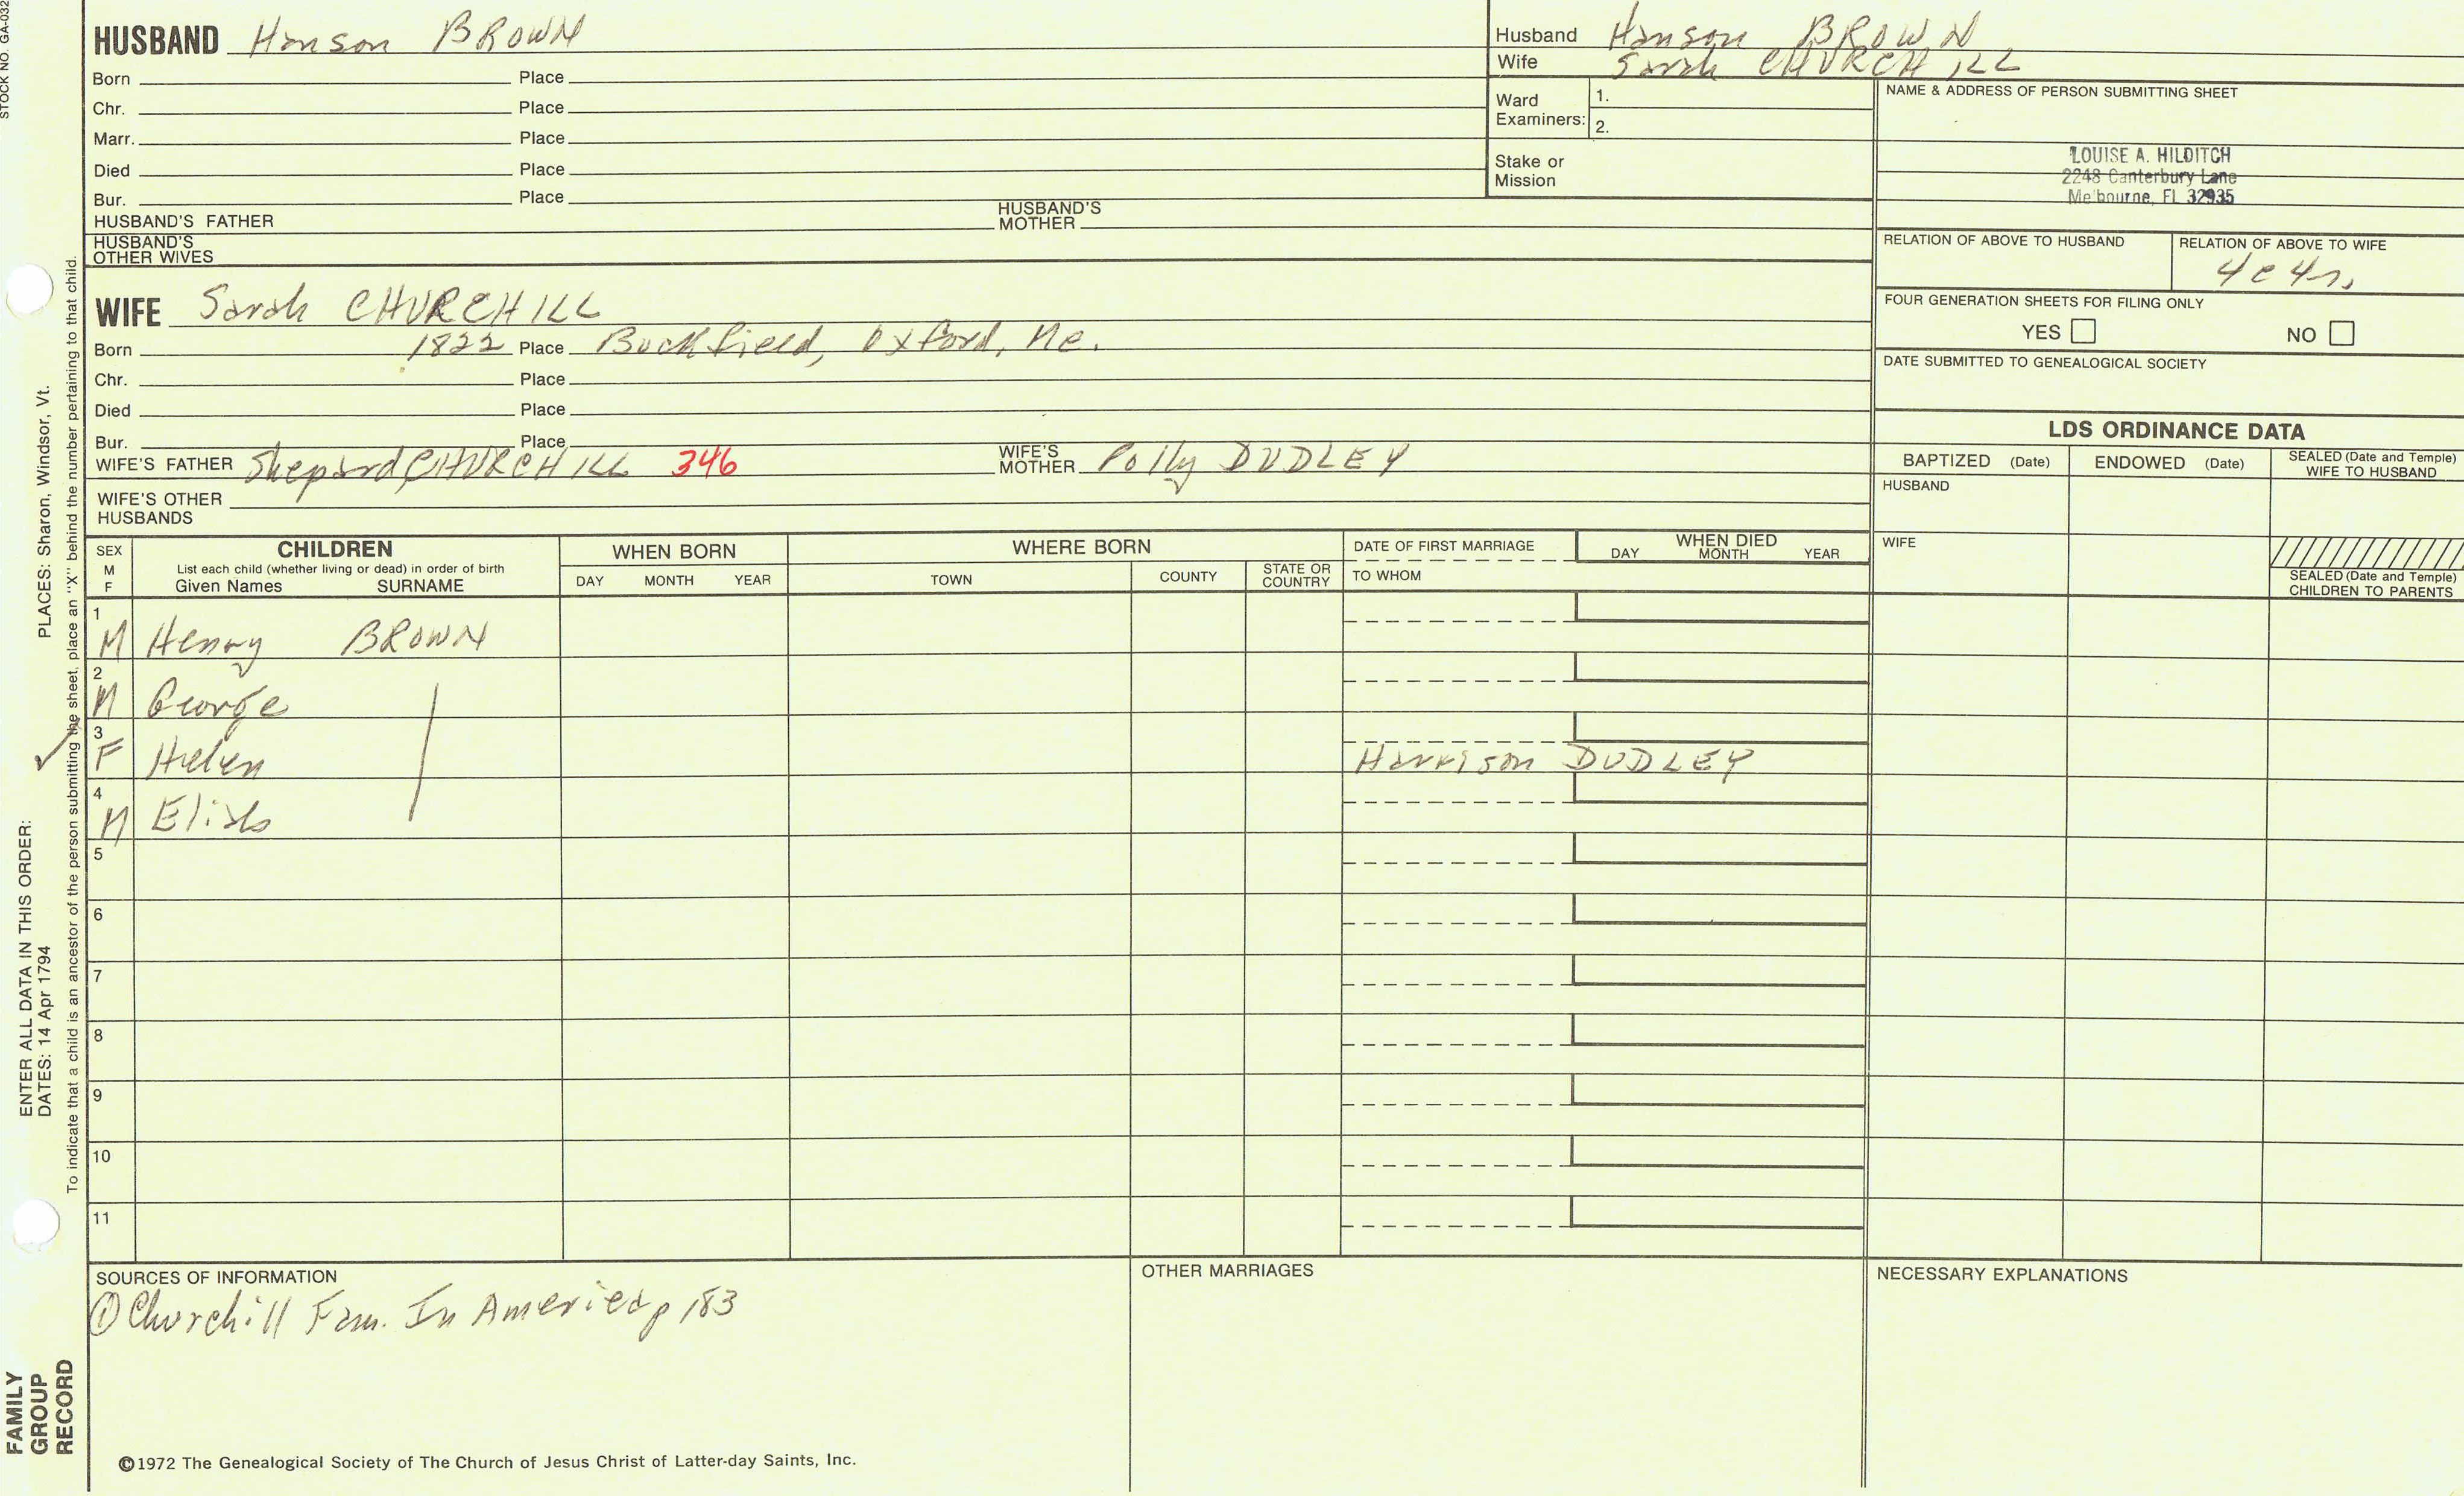 STOCK NO. GA-032
HUSBAND Hanson BROWN
Born Place
Chr. Place
Marr. Place
Died Place
Bur. Place
HUSBAND'S FATHER HUSBAND'S MOTHER
HUSBAND'S OTHER WIVES
Husband Hanson BROWN
Wife Sarah CHURCHILL
Ward Examiners: 1.
2.
Stake or Mission
NAME & ADDRESS OF PERSON SUBMITTING SHEET
LOUISE A. HILDITCH
2248 Canterbury Lane
Melbourne, FL 32935
RELATION OF ABOVE TO HUSBAND RELATION OF ABOVE TO WIFE
4c4r,
FOUR GENERATION SHEETS FOR FILING ONLY
YES NO
DATE SUBMITTED TO GENEALOGICAL SOCIETY
WIFE Sarah CHURCHILL
Born 1822 Place Buckfield, Oxford, Me.
Chr. Place
Died Place
Bur. Place
WIFE'S FATHER Shepard CHURCHILL 346 WIFE'S MOTHER Polly DUDLEY
WIFE'S OTHER HUSBANDS
LDS ORDINANCE DATA
BAPTIZED (Date) ENDOWED (Date) SEALED (Date and Temple) WIFE TO HUSBAND
HUSBAND
WIFE
SEALED (Date and Temple) CHILDREN TO PARENTS
SEX M F CHILDREN WHEN BORN WHERE BORN DATE OF FIRST MARRIAGE WHEN DIED
List each child (whether living or dead) in order of birth
Given Names SURNAME DAY MONTH YEAR TOWN COUNTY STATE OR COUNTRY TO WHOM DAY MONTH YEAR
1 M Henry BROWN
2 M George
3 F Helen Harrison DUDLEY
4 M Elisha
5
6
7
8
9
10
11
SOURCES OF INFORMATION
① Churchill Fam. In America p 183
OTHER MARRIAGES
NECESSARY EXPLANATIONS
©1972 The Genealogical Society of The Church of Jesus Christ of Latter-day Saints, Inc.
ENTER ALL DATA IN THIS ORDER: PLACES: Sharon, Windsor, Vt.
DATES: 14 Apr 1794
To indicate that a child is an ancestor of the person submitting the sheet, place an "X" behind the number pertaining to that child.
FAMILY
GROUP
RECORD